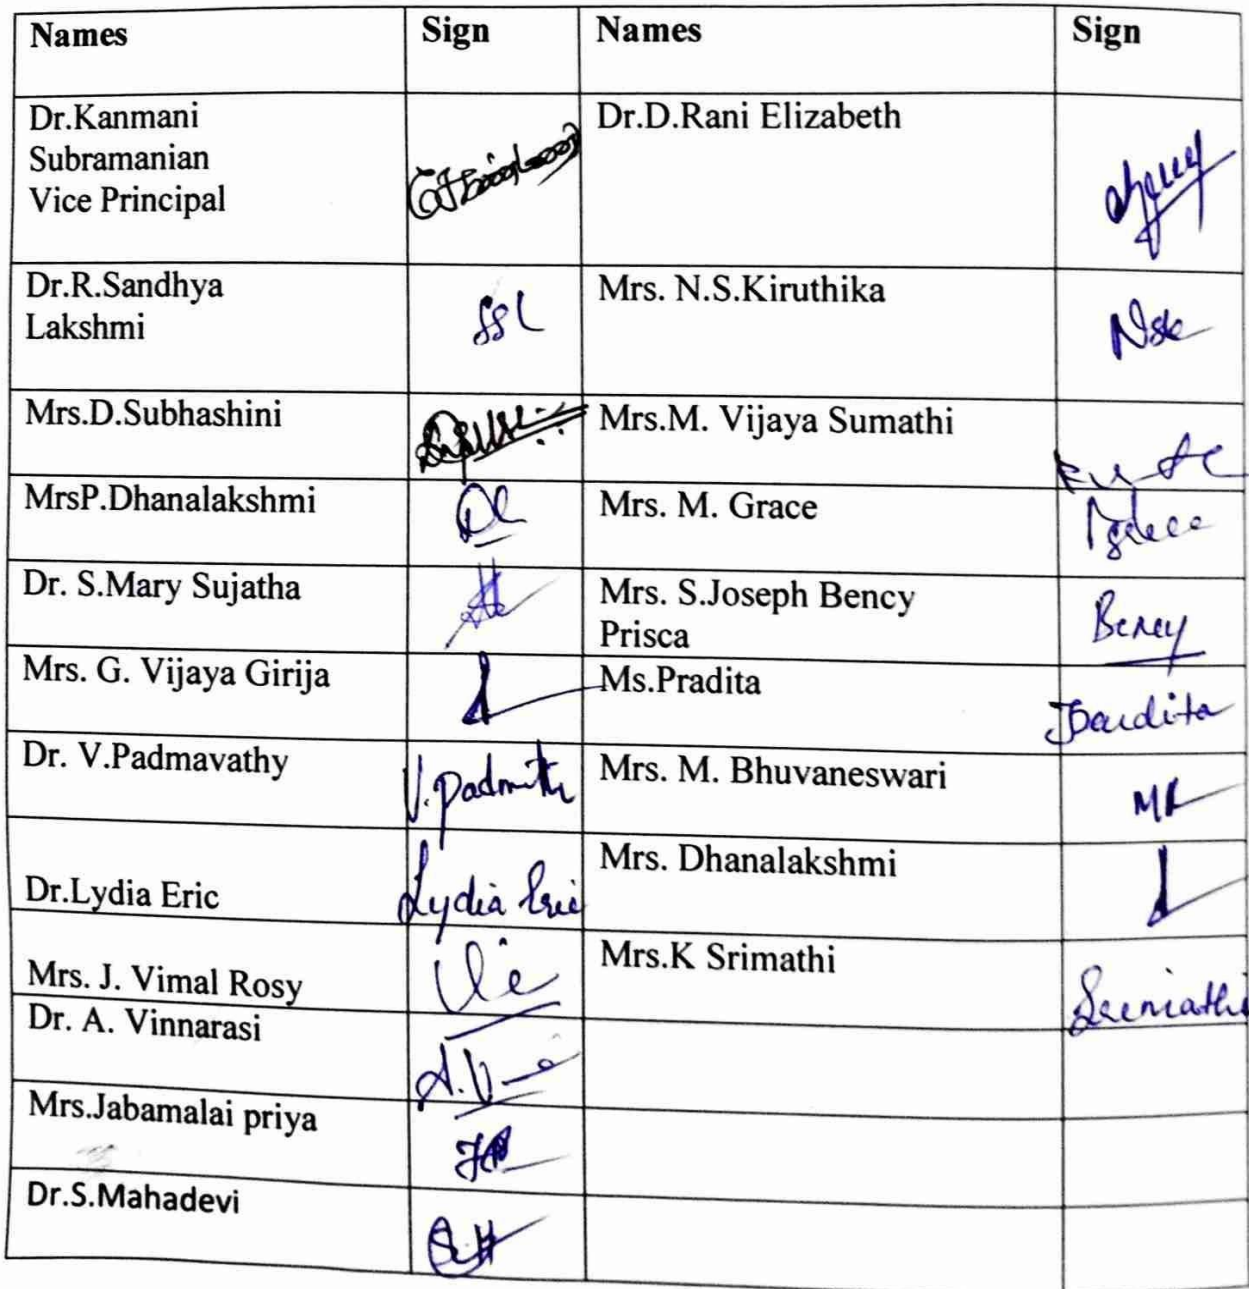 Names Sign Names Sign
Dr.Kanmani
Subramanian
Vice Principal
Dr.D.Rani Elizabeth
Dr.R.Sandhya
Lakshmi
SSL
Mrs. N.S.Kiruthika
Nsk
Mrs.D.Subhashini
Mrs.M. Vijaya Sumathi
MrsP.Dhanalakshmi
Mrs. M. Grace
Dr. S.Mary Sujatha
Mrs. S.Joseph Bency
Prisca
Bency
Mrs. G. Vijaya Girija
Ms.Pradita
Dr. V.Padmavathy
Mrs. M. Bhuvaneswari
Dr.Lydia Eric
Lydia Eric
Mrs. Dhanalakshmi
Mrs. J. Vimal Rosy
Mrs.K Srimathi
Dr. A. Vinnarasi
Mrs.Jabamalai priya
Dr.S.Mahadevi